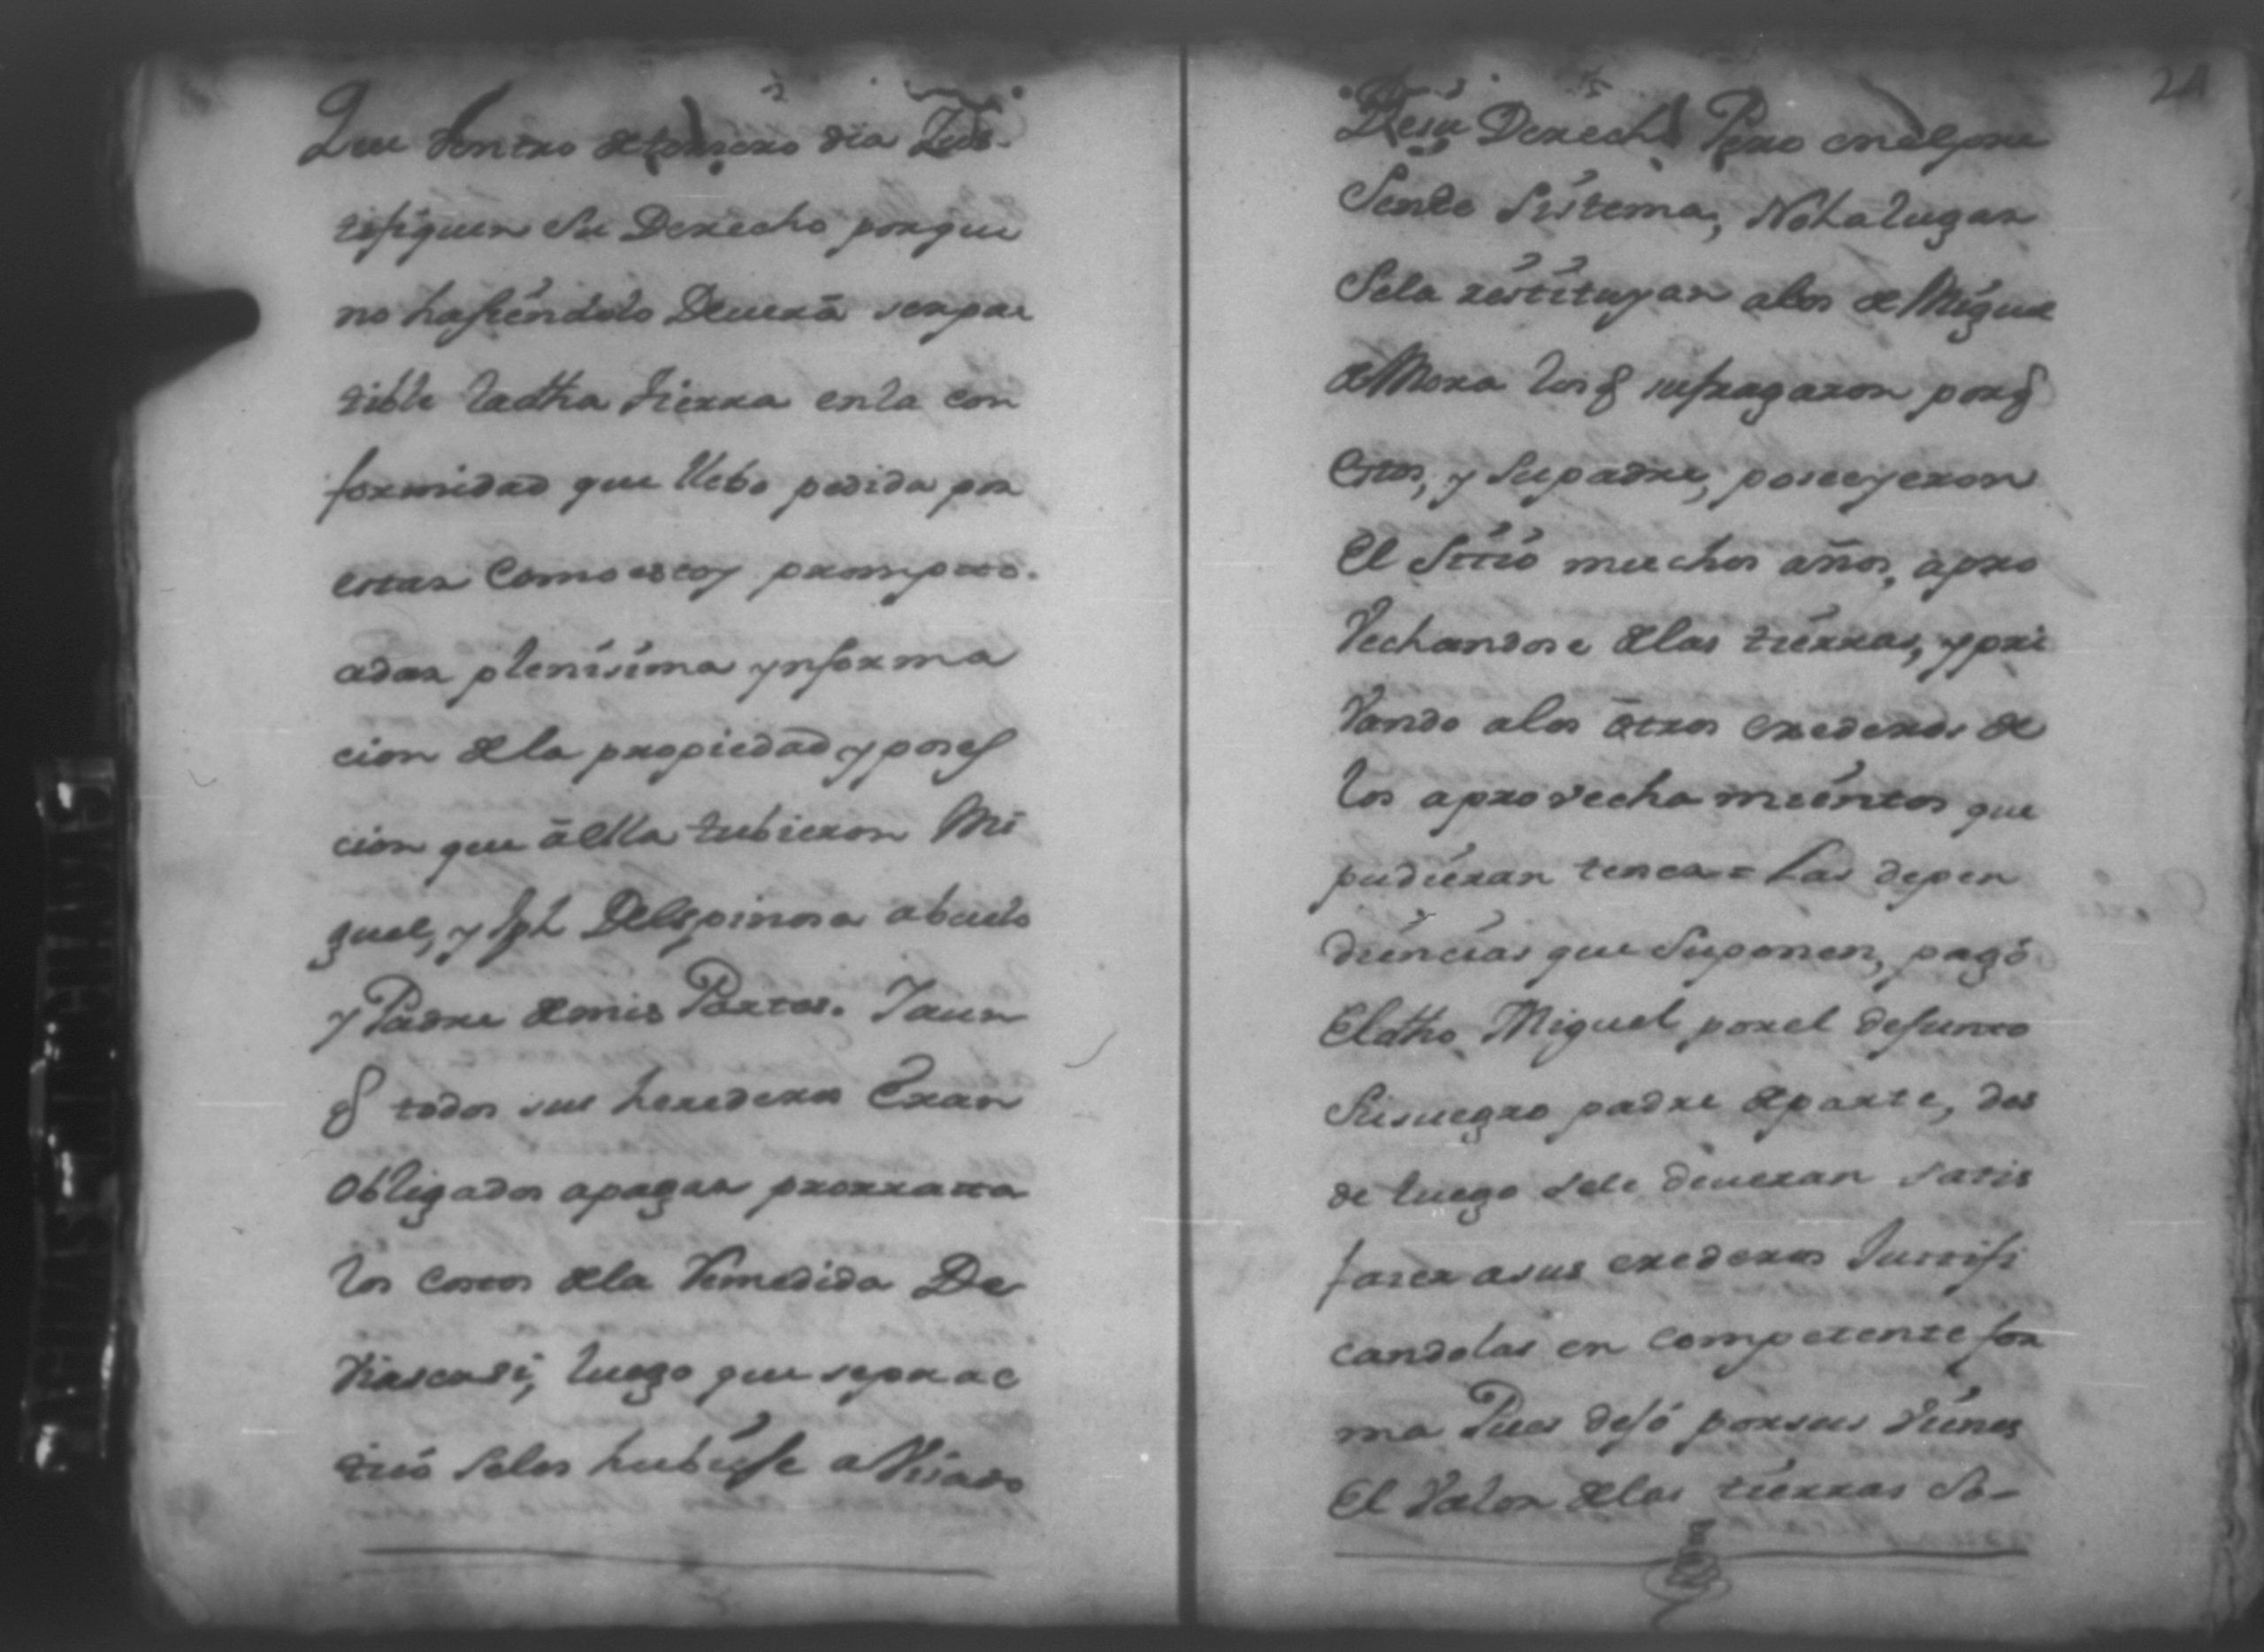 Que dentro de tersero dia Jus-
tifiquen Su Derecho porque
no hasiéndolo Deuerá serpar
tible ladha tierra enla con
formidad que llebo pedida por
estar Como estoy prompto.
adar plenísima ynforma
cion dela propiedad y poses
cion que ā ella tubieron Mi
guel, y Jph Delespinosa abuelo
y Padre demis Partes. Y aun
q todos sus herederos Eran
obligados apagar prorrata
los costos dela Remedida De
luego que seprac
ticó Selos hubiése
24
Desu Derecho Pero enelpre
Sente Sístema, Nohalugar
Sela restituyan alos de Miguel
de Mora losq sufragaron porq
Estos, y Supadre, poseeyeron
El Sitio muchos años, apro
Vechandose delas tiérras, y pri
Vando alos otros erederos de
los aprovechamiéntos que
pudiéran tener = Las depen
diéncias que Suponen, pagó
Eldho Miguel porel defunto
Susuegro padre demiparte, des
de luego sele deueran satis
facer asus erederos Justifi
candolas en Competente for
ma Pues dejó porsus Viénes
El Valor delas tiérras So-